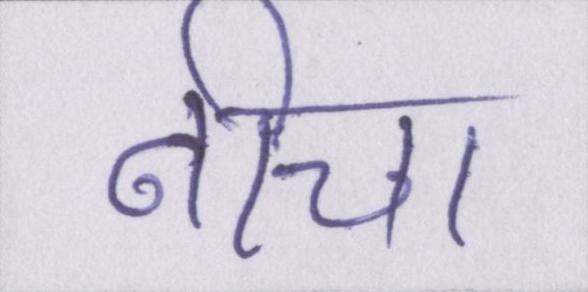 नीचा